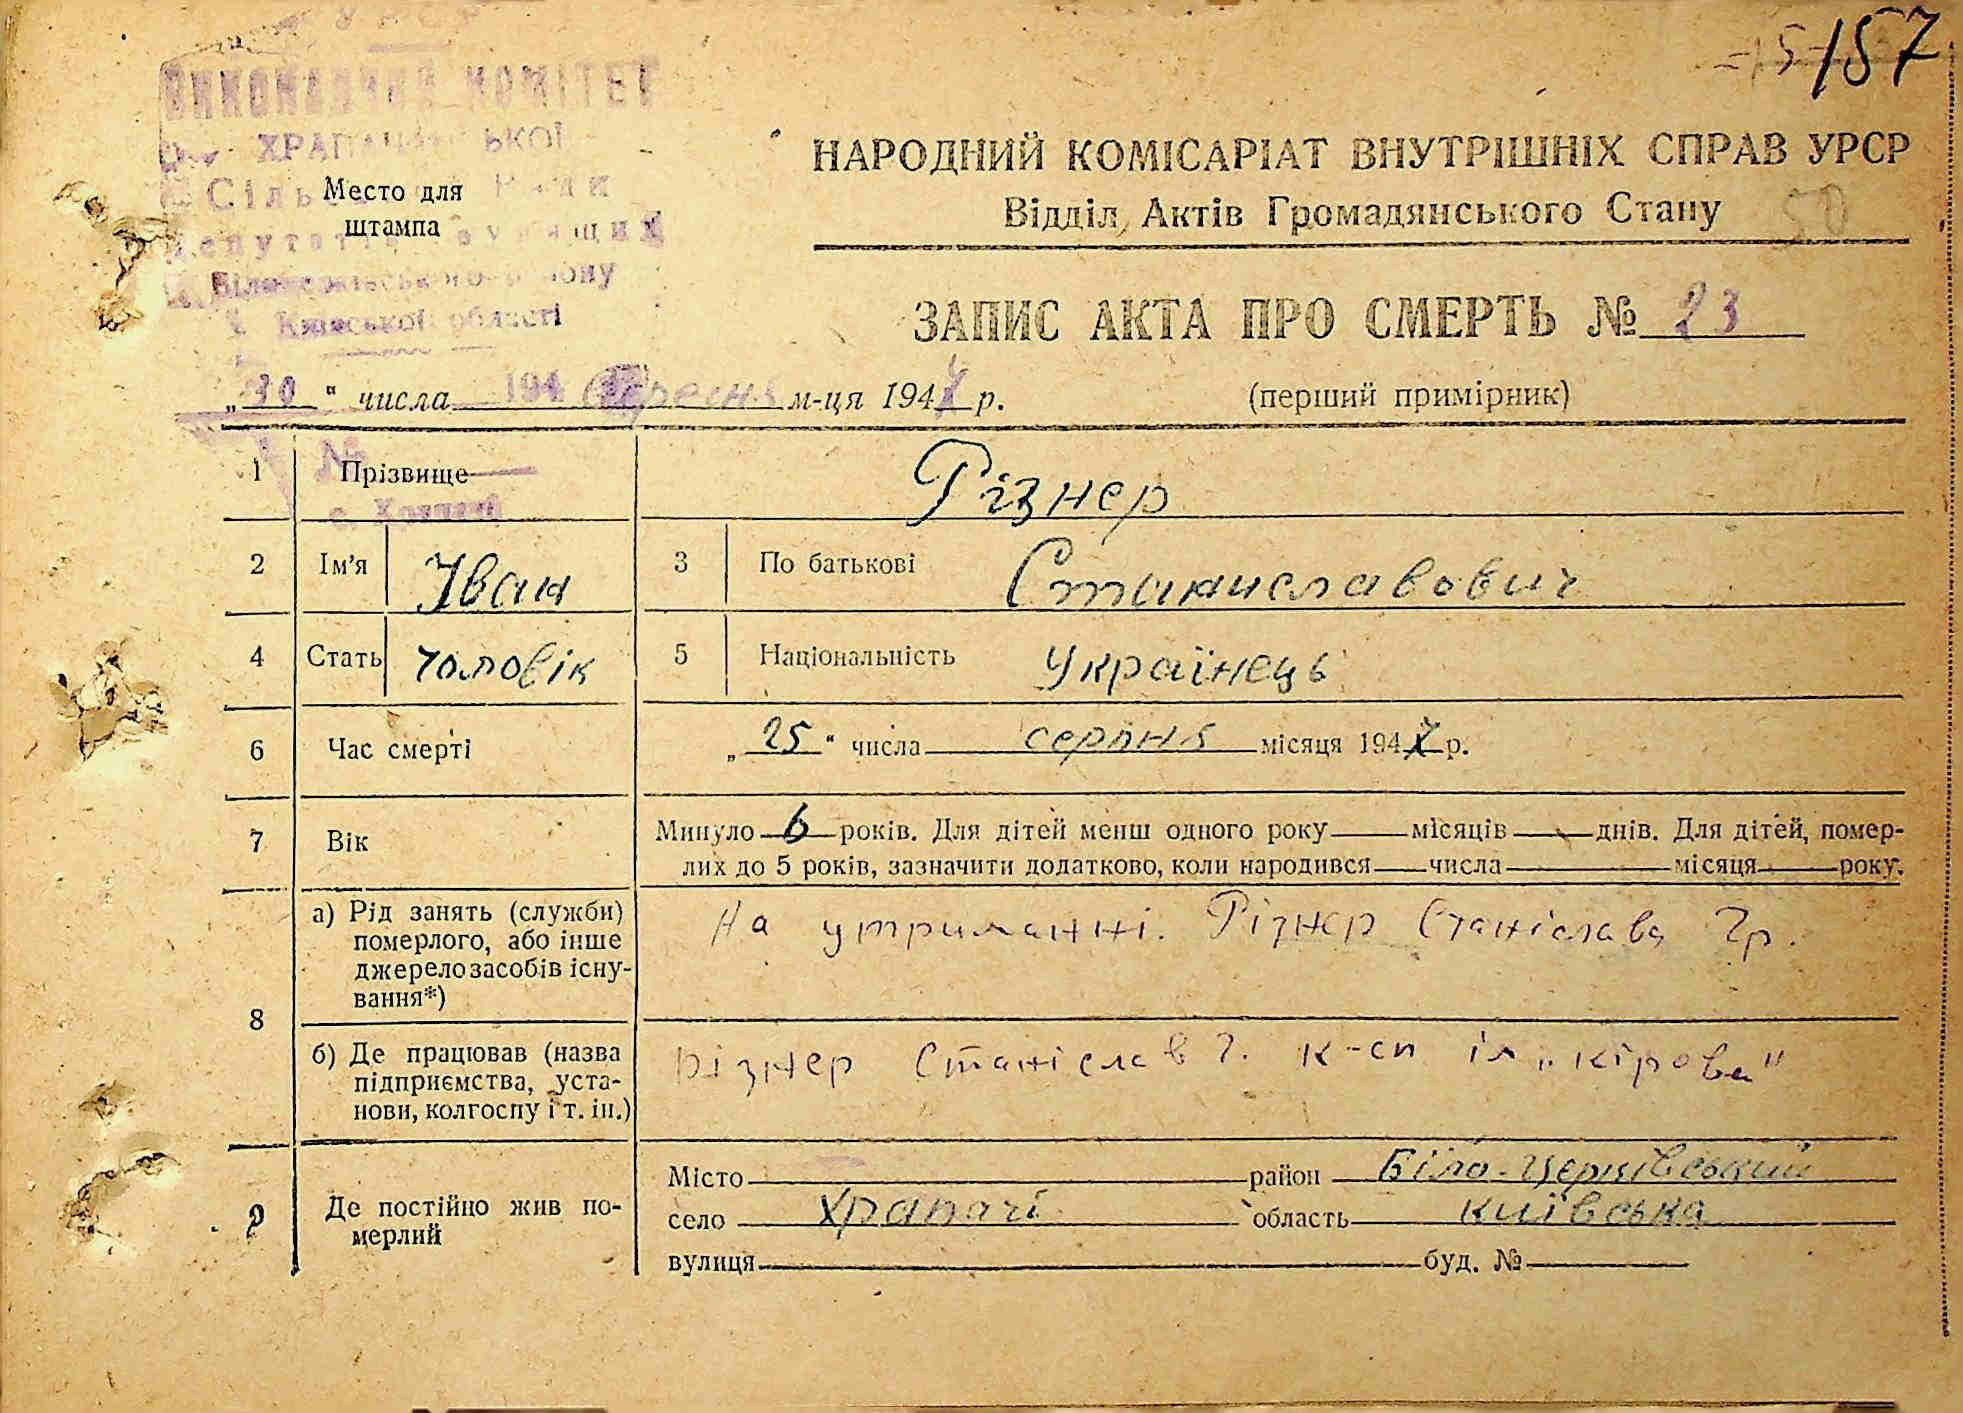 157
УРСР
ВИКОНАВЧИЙ КОМІТЕТ
ХРАПАЧАНСЬКОЇ
Сільської Ради
Депутатів Трудящих
Білоцерківського району
Київської області
Место для
штампа
НАРОДНИЙ КОМІСАРІАТ ВНУТРІШНІХ СПРАВ УРСР
Відділ Актів Громадянського Стану 50
ЗАПИС АКТА ПРО СМЕРТЬ № 23
„10“ числа 194 вересня м-ця 1947 р. (перший примірник)
№
1 Прізвище Різнер
с. Храпачі
2 Ім’я Іван 3 По батькові Станиславович
4 Стать чоловік 5 Національність Українець
6 Час смерті „25“ числа серпня місяця 1947 р.
7 Вік Минуло 6 років. Для дітей менш одного року місяців днів. Для дітей, помер-
лих до 5 років, зазначити додатково, коли народився числа місяця року.
8 а) Рід занять (служби) померлого, або інше джерело засобів існу-вання*) На утриманні. Різнер Станіслава Гр.
б) Де працював (назва підприємства, уста-нови, колгоспу і т. ін.) Різнер Станіслав Г. к-сп ім „кірова"
9 Де постійно жив по-мерлий Місто район Біло-Церківський
село Храпачі область київська
вулиця буд. №